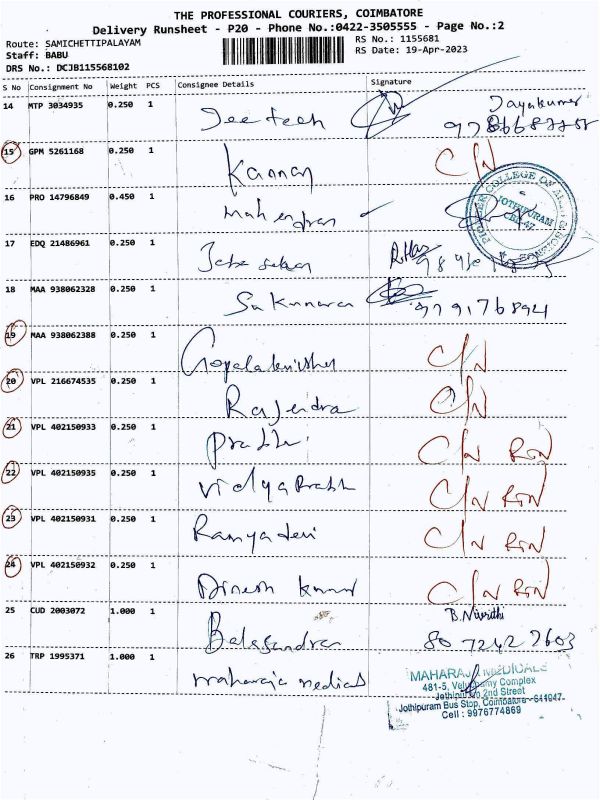 THE PROFESSIONAL COURIERS, COIMBATORE
Delivery Runsheet - P20 - Phone No.:0422-3505555 - Page No.:2
Route: SAMICHETTIPALAYAM
RS No.: 1155681
Staff: BABU
RS Date: 19-Apr-2023
DRS No.: DCJB115568102
S No Consignment No Weight PCS Consignee Details Signature
14 MTP 3034935 0.250 1 Jeetech Jayakumar
15 GPM 5261168 0.250 1 Kannan C/N
16 PRO 14796849 0.450 1 mahendran
JOTHIPURAM
CBE-47
17 EDQ 21486961 0.250 1
18 MAA 938062328 0.250 1 Sukumaran
19 MAA 938062388 0.250 1 Gopalakrishnan C/N
20 VPL 216674535 0.250 1 Rajendra C/N
21 VPL 402150933 0.250 1 Prabhu C/N RTN
22 VPL 402150935 0.250 1 Vidya Prabh C/N RTN
23 VPL 402150931 0.250 1 Ramyadevi C/N RTN
24 VPL 402150932 0.250 1 Dinesh kumar C/N RTN
25 CUD 2003072 1.000 1 Balasandra B. Nivrithi
80 7242 7603
26 TRP 1995371 1.000 1 maharaja medicals
MAHARAJA MEDICALS
481-5, Complex
Jothipuram 2nd Street
Jothipuram Bus Stop, Coimbatore - 641047.
Cell : 9976774869